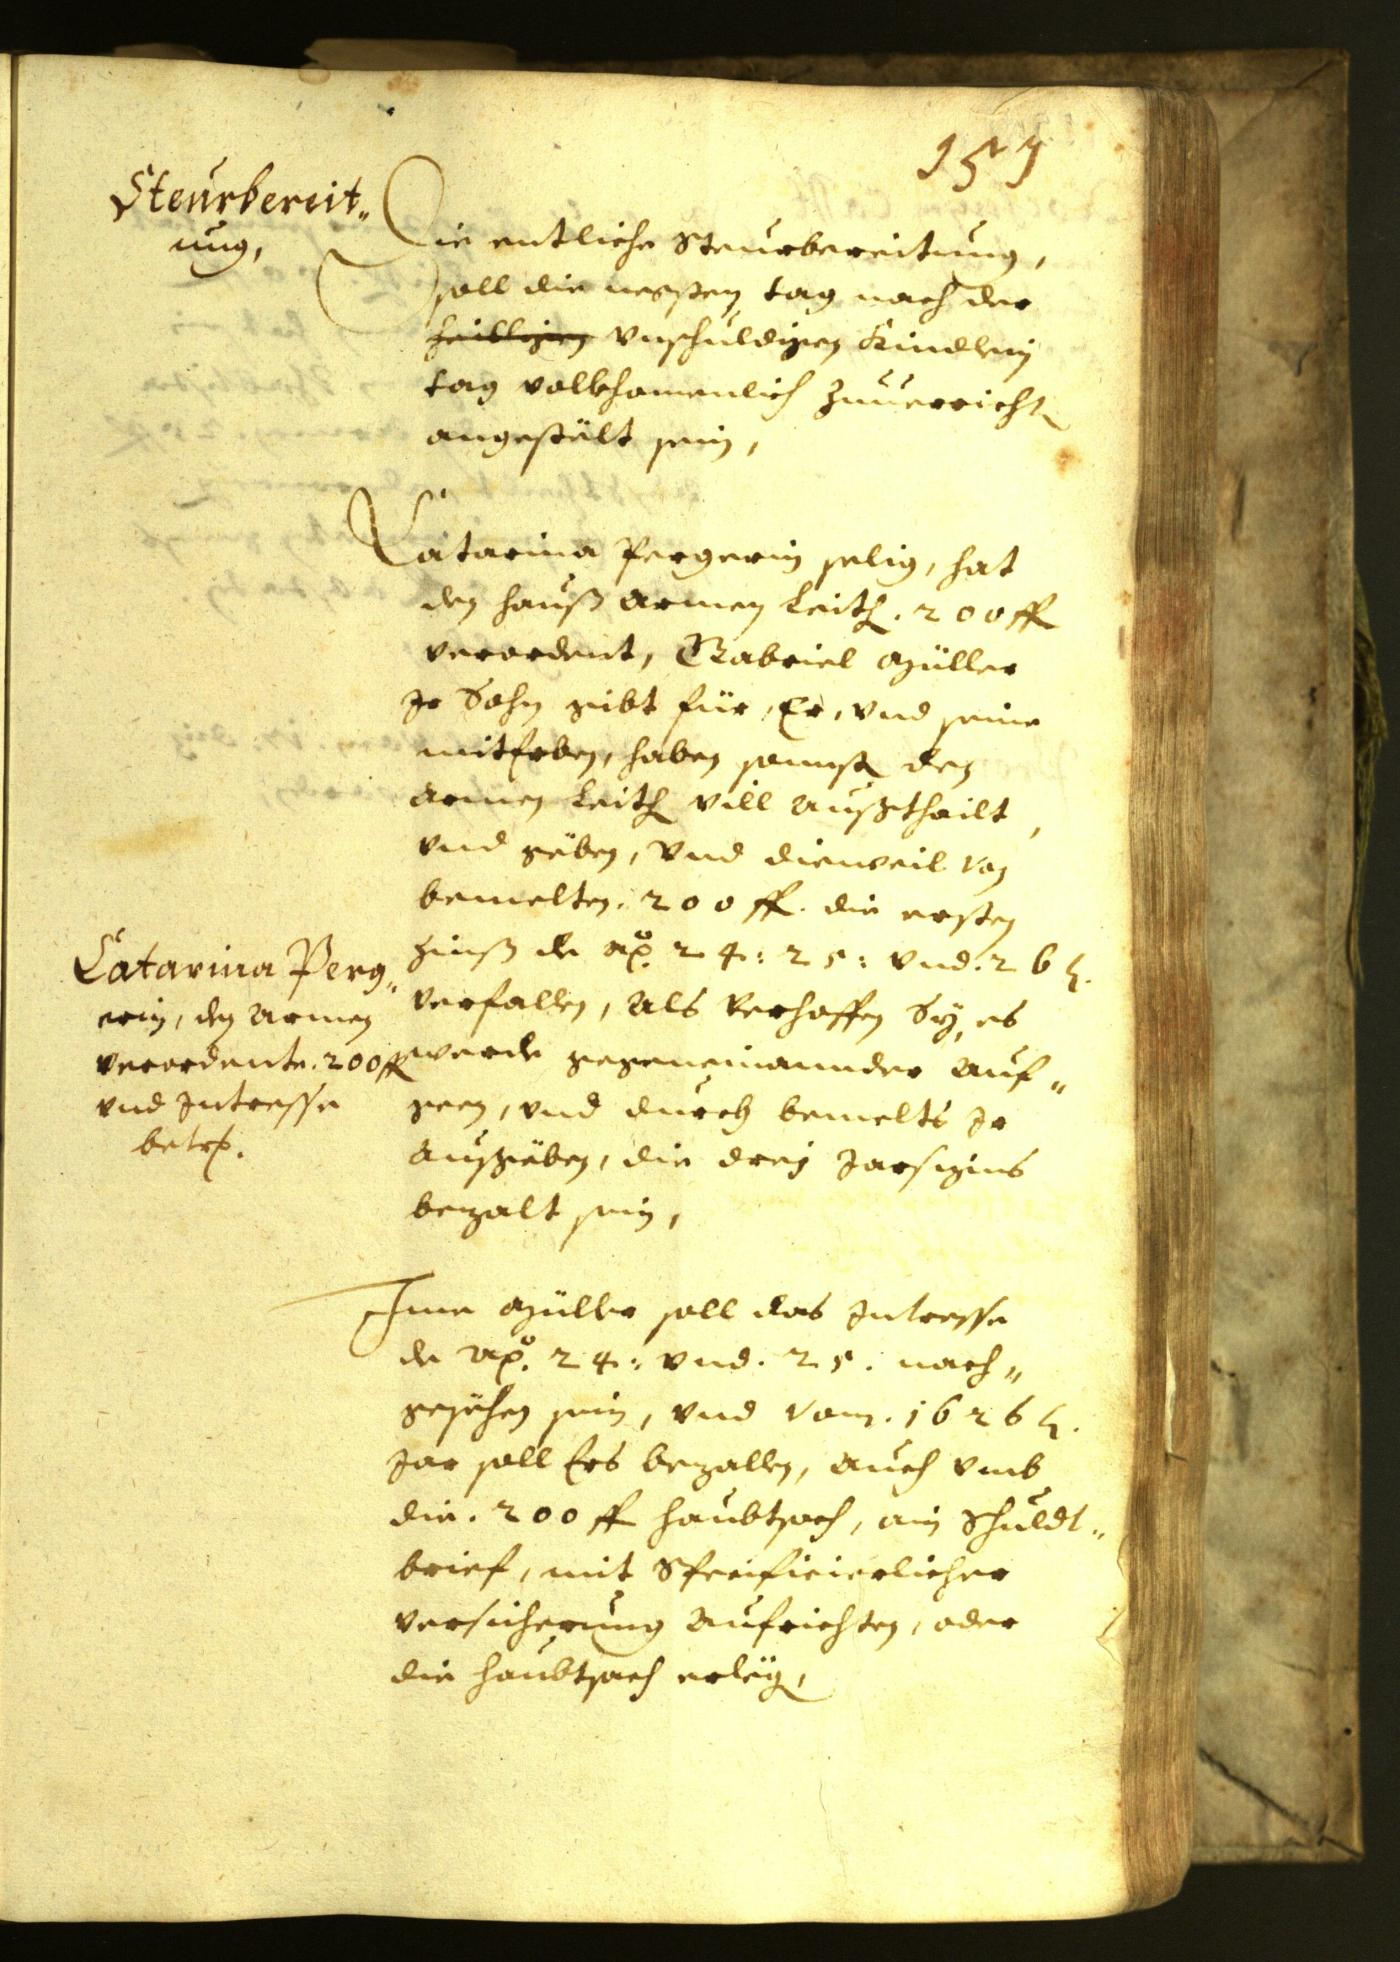 157
Steurbereit„
ung,
Die entliche Steurbereitung,
soll die negsten tag nach der
heilligen vnschuldigen Kindlein
tag volkhomenlich zuuerricht
angestält sein,
Catarina Pergerin selig, hat
den hauß armen Leith. 200 ff
verordent, Gabriel Müller
Ir Sohn gibt für, Er, vnd seine
mitErben, haben sonnst den
armen Leith vill außthailt,
vnd gëben, vnd dieweil von
bemelten. 200 ff. die ersten
Zinß de Aº. 24: 25: vnd. 26
verfallen, als verhoffen Sÿ, es
werde gegeneinannder auf„
geen, vnd durch bemelts Ir
außgëben, die dreÿ Jarszins
bezalt sein,
Catarina Perg„
erin, den armen
verordente. 200 ff
vnd Intresse
betrf.
Ime Müller soll das Intresse
de Aº. 24: vnd. 25. nach„
gesëhen sein, vnd vom. 1626
Jar soll Ers bezallen, auch vmb
die. 200 ff haubtsach, ain Schuldt„
brief, mit Specificierlicher
versicherung aufrichten, oder
die haubtsach erlëg,